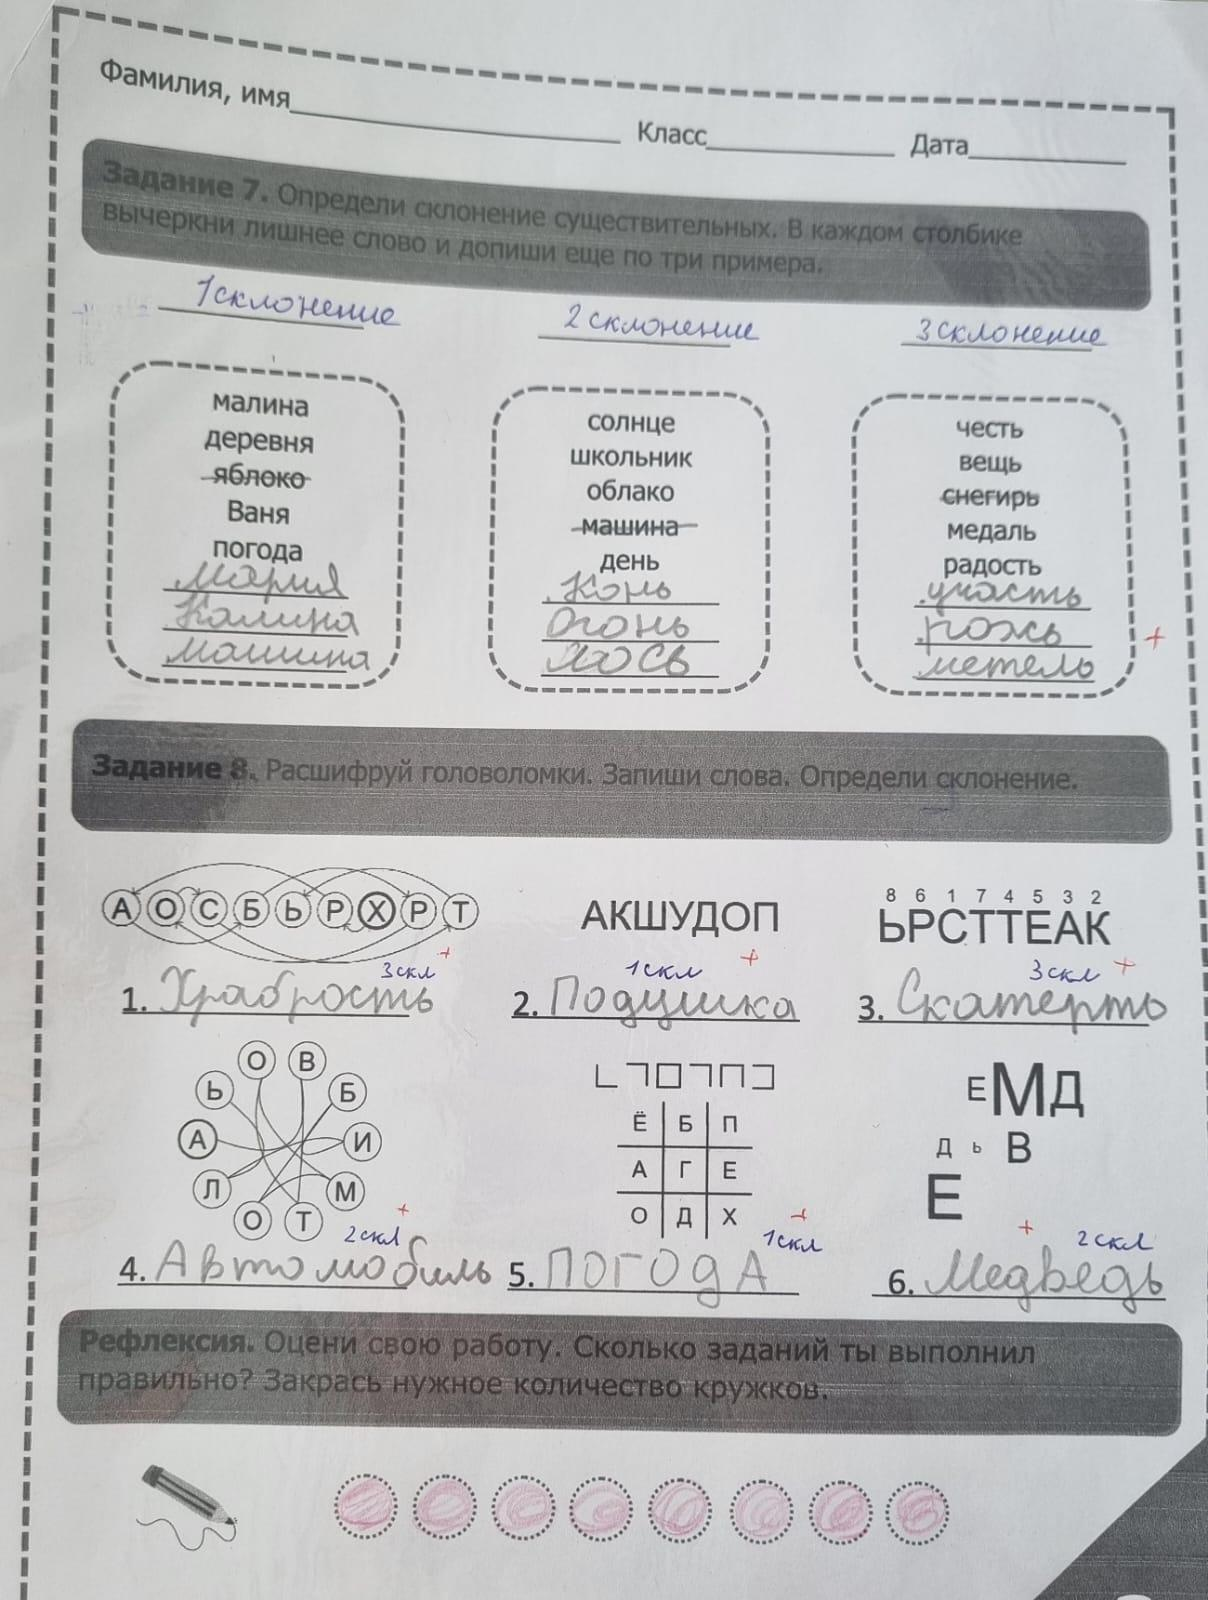 Фамилия, имя Класс Дата
Задание 7. Определи склонение существительных. В каждом столбике
вычеркни лишнее слово и допиши еще по три примера.
1 склонение
малина
деревня
яблоко
Ваня
погода
Мария
Калина
машина
2 склонение
солнце
школьник
облако
машина
день
Конь
Огонь
лось
3 склонение
честь
вещь
снегирь
медаль
радость
участь
рожь
метель
+
Задание 8. Расшифруй головоломки. Запиши слова. Определи склонение.
А О С Б Ь Р Х Р Т
3 скл +
1. Храбрость
АКШУДОП
1 скл +
2. Подушка
8 6 1 7 4 5 3 2
ЬРСТТЕАК
3 скл +
3. Скатерть
О В
Ь Б
А И
Л М
О Т
2 скл +
4. Автомобиль
Ё Б П
А Г Е
О Д Х
1 скл +
5. ПОГОдА
Е М Д
Д Ь В
Е
+ 2 скл
6. Медведь
Рефлексия. Оцени свою работу. Сколько заданий ты выполнил
правильно? Закрась нужное количество кружков.